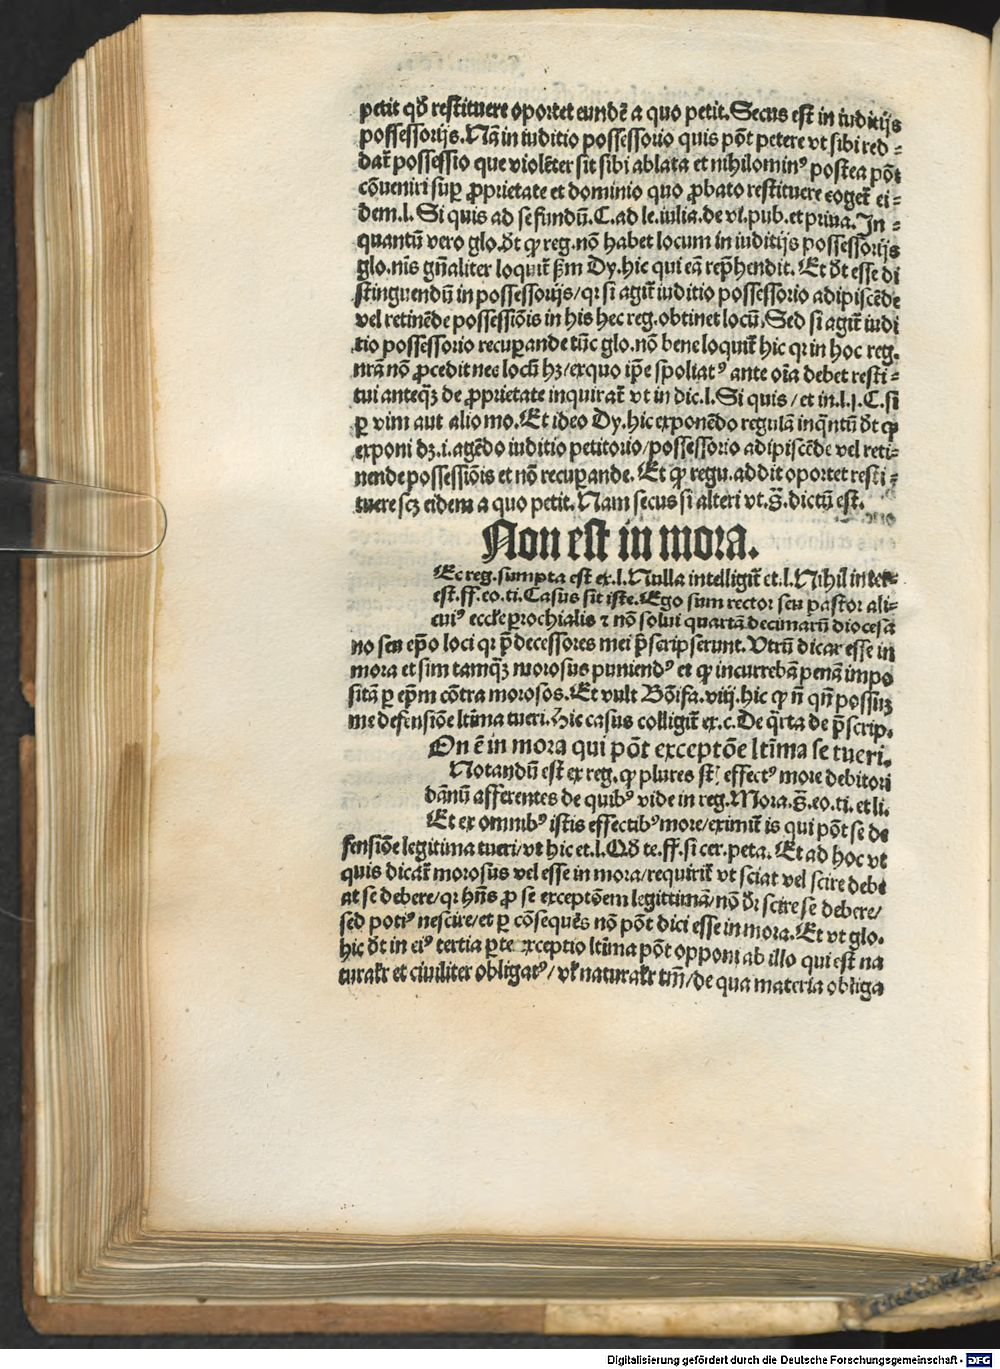 petit qd̄ restituere oportet eundē a quo petit. Secus est in iuditijs
possessorijs. Nā in iuditio possessorio quis pōt petere vt sibi red⸗
dat̄ possessio que violēter sit sibi ablata et nihilominꝰ postea pōt
cōueniri suꝑ ꝓprietate et dominio quo ꝓbato restituere coget̄ ei⸗
dem. l. Si quis ad se fundū. C. ad le. iulia. de vi. pub. et priua. In⸗
quantū vero glo. dt̄ ꝙ reg. nō habet locum in iuditijs possessorijs
glo. nīs gn̄aliter loquit̄ ẜm Dy. hic qui eā rep̄hendit. Et dt̄ esse di
stinguendū in possessorijs/ qꝛ si agit̄ iuditio possessorio adipiscēde
vel retinēde possessiōis in his hec reg. obtinet locū. Sed si agit̄ iudi
tio possessorio recuꝑande tūc glo. nō bene loquit̄ hic qꝛ in hoc reg.
nr̄a nō ꝓcedit nec locū hꝫ/ ex quo ip̄e spoliatꝰ ante oīa debet resti⸗
tui anteq̄ꝫ de ꝓprietate inquirat̄ vt in dic. l. Si quis/ et in. l. j. C. si
ꝑ vim aut alio mo. Et ideo Dy. hic exponēdo regulā inq̄ntū dt̄ ꝙ
exponi dꝫ. i. agēdo iuditio petitorio/ possessorio adipiscēde vel reti⸗
nende possessiōis et nō recuꝑande. Et ꝙ regu. addit oportet resti⸗
tuere scꝫ eidem a quo petit. Nam secus si alteri vt. s̄. dictū est.
Non est in mora.
Ec reg. sumpta est ex. l. Nulla intelligit̄ et. l. Nihil inter
est. ff. eo. ti. Casus sit iste. Ego sum rector seu pastor ali⸗
cuiꝰ eccl̄e ꝑrochialis ⁊ nō solui quartā decimarū diocesa
no seu ep̄o loci qꝛ p̄decessores mei p̄scripserunt. Vtrū dicar esse in
mora et sim tamq̄ꝫ morosus puniendꝰ et ꝙ incurrebā penā impo
sitā ꝑ ep̄m cōtra morosos. Et vult Bōifa. viij. hic ꝙ n̄ qn̄ possuꝫ
me defensiōe ltīma tueri. Hic casus colligit̄ ex. c. De q̄rta de p̄scrip.
On ē in mora qui pōt exceptōe ltīma se tueri.
Notandū est ex reg. ꝙ plures st̄ effectꝰ more debitori
dānū afferentes de quibꝰ vide in reg. Mora. s̄. eo. ti. et li.
Et ex omnibꝰ istis effectibꝰ more/ eximit̄ is qui pōt se de
fensiōe legitima tueri/ vt hic et. l. Qd̄ te. ff. si cer. peta. Et ad hoc vt
quis dicat̄ morosus vel esse in mora/ requirit̄ vt sciat vel scire debe
at se debere/ qꝛ hn̄s ꝓ se exceptōem legittimā/ nō dr̄ scire se debere/
sed potiꝰ nescire/ et ꝑ cōsequēs nō pōt dici esse in mora. Et vt glo.
hic dt̄ in eiꝰ tertia ꝑte exceptio ltīma pōt opponi ab illo qui est na
turalr̄ et ciuiliter obligatꝰ/ vl̄ naturalr̄ tm̄/ de qua materia obliga
Digitalisierung gefördert durch die Deutsche Forschungsgemeinschaft - DFG